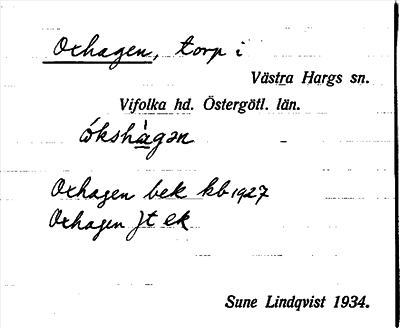 Oxhagen, torp i
Västra Hargs sn.
Vifolka hd. Östergötl. län.
ókshàgən
Oxhagen bek kb 1927
Oxhagen Jt ek
Sune Lindqvist 1934.